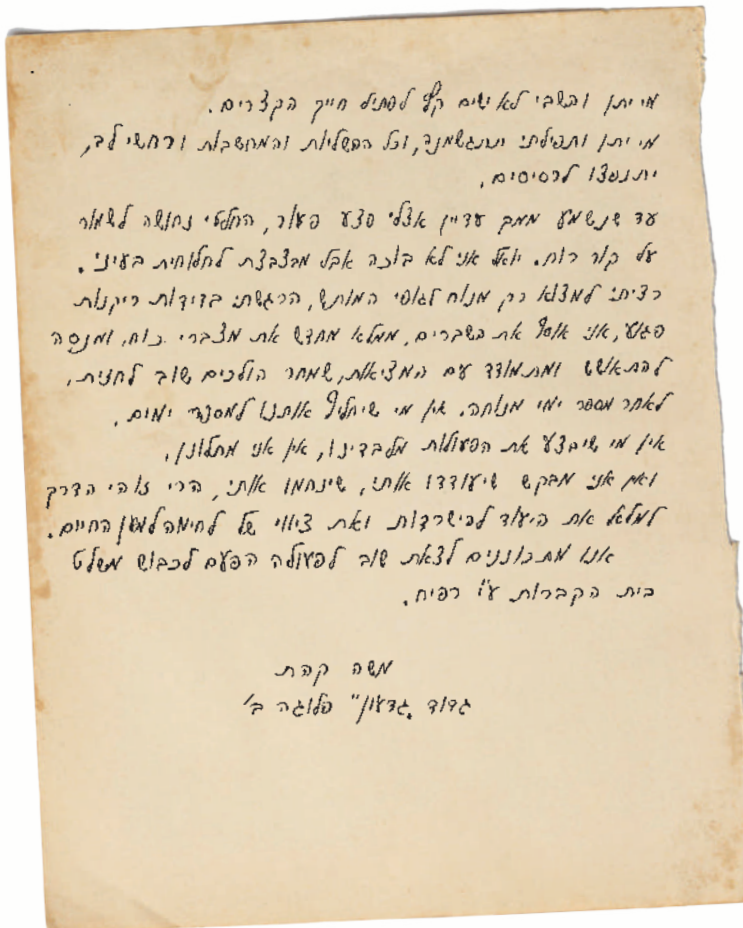 מי יתן והשבי לא ישים קץ לפתיל חייך הקצרים.
מי יתן ותפילתי תתגשמנה, וכל הכשליות והמחשבות ורחשי לב,
יתנפצו לרסיסים.
עד שנשמע ממך עדיין אצלי פצע פעור, החלטתי נחושה לשמור
על קור רוח. יואל אני לא בוכה אבל מבצבצת לחלוחית בעיני.
רציתי למצוא רק מנוח לגופי המותש, הרגשתי בדידות ריקנות
פגוע, אני אוסף את השברים, ממלא מחדש את מצברי כוח, ומנסה
להתאושש ומתמודד עם המציאות, שמחר הולכים שוב לחזית,
לאחר מספר ימי מנוחה. אין מי שיחליף אותנו למספר ימים,
אין מי שיבצע את הפעולות מלבדינו, אין אני מתלונן,
ואין אני מבקש שיעודדו אותי, שינחמו אותי, הרי זוהי הדרך
למלא את היעוד לכישרדות ואת ציווי של לחימה למען החיים.
אנו מתכוננים לצאת שוב לפעולה הפעם לכבוש משלט
בית הקברות ע"י רפיח.
משה קהת
גדוד "גדעון" פלוגה ב'